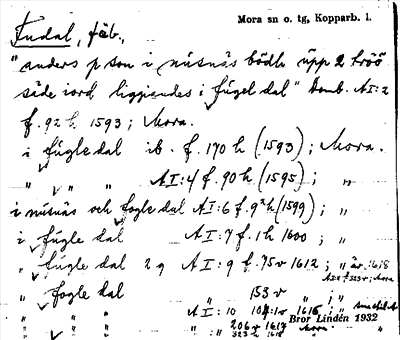 Mora sn o. tg, Kopparb. l.
Fudal, fäb.,
"anders p son i nüsnäs bödh üpp 2 tröö
säde iord liggiendes i fügel dal" Domb. AI:2
f. 92 h. 1593; Mora.
i fügle dal ib. f. 170 h (1593); Mora.
" " " AI:4 f. 90 h (1595); "
i nüsnäs och fogle dal AI:6 f. 92 h (1599); "
i fügle dal AI:7 f. 1 h 1600; "
" fügle dal 2 g AI:9 f. 75 v 1612; " år 1618
" fogle dal " 153 v " ; "
" " " AI:10 104:1 v 1616;
" " " " 206 v 1617 Mora
" 323 h 1618 "
Bror Lindén 1932